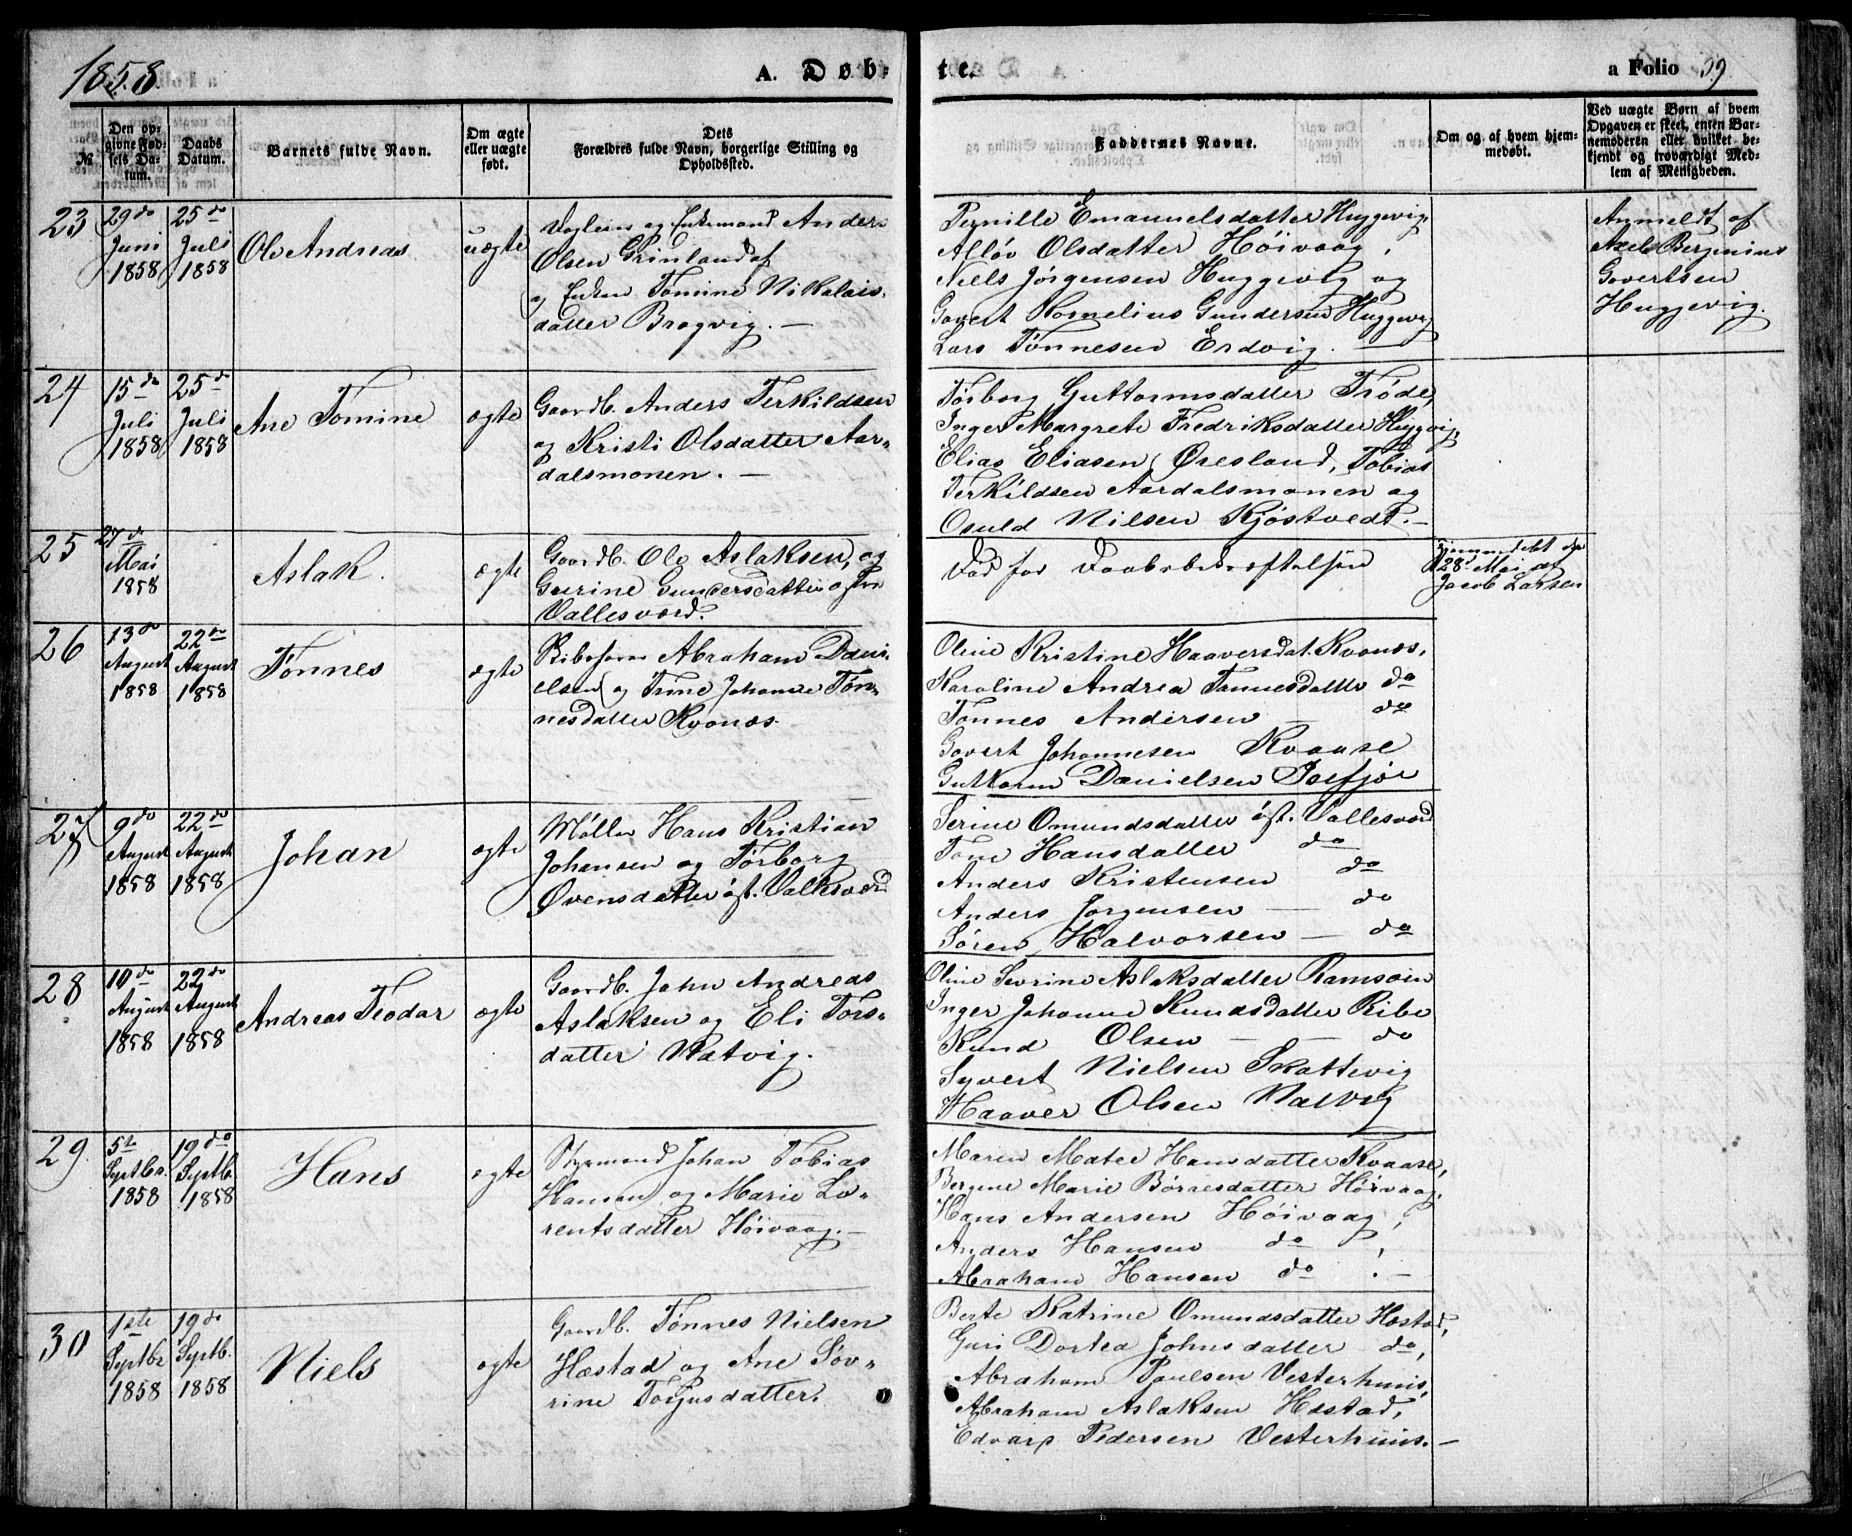 1858
A. Døb-
te.
a Folio 59
No
Den op-
givne Fød-
sels Da-
tum.
Daabs
Datum.
Barnets fulde Navn.
Om ægte
eller uægte
født.
Dets
Forældres fulde Navn, borgerlige Stilling og
Opholdssted.
Faddernes Navne.
Om og af hvem hjem-
medøbt.
Ved uægte Børn af hvem
Opgaven er skeet, enten Bar-
nemoderen eller hvilket be-
kjendt og troværdigt Med-
lem af Menigheden.
23
29 do
Juni
1858
25 do
Juli
1858
Ole Andreas
uægte
og Enkemand Anders
Olsen Grinland af
og Enken Tomine Nikolais-
datter Bragvig. —
Pernille Emanuelsdatter Huggevig,
Olsdatter Höivaag,
Niels Jörgensen Huggevig og
Govert Kornelius Gundersen Huggevig
Lars Tönnesen Erdvig.
Anmeldt af
Axel Bergenius
Govertsen
Huggevig.
24
15 do
Juli
1858
25 do
Juli
1858
Ane Tomine
ægte
Gaardb. Anders Terkildsen
og Kristi Olsdatter Aar-
dalsmonen. —
Torborg Guttormsdatter Tröde,
Inger Margrete Fredriksdatter Huggvig,
Elias Eliasen Öresland, Tobias
Terkildsen Aardalsmonen og
Osuld Nilsen Kjöstvedt. —
25
27 do
Mai
1858
Aslak.
ægte
Gaardb. Ole Aslaksen og
Gurine Gundersdatter
Vallesværd.
Død før Daabsbekræftelsen
Hjemmedöbt den
28 Mai af
Jacob Larsen
26
13 do
August
1858
22 do
August
1858
Tönnes
ægte
Abraham Dani-
elsen og Trine Johanne Tön-
nesdatter Kvanæs
Oline Kristine Haaversdat. Kvanæs,
Karoline Andrea Tönnesdatter do
Tönnes Andersen — do
Govert Johannesen Kvaase
Guttorm Danielsen
27
9 do
August
1858
22 do
August
1858
Johan
ægte
Möller Hans Kristian
Johansen og Torborg
Ovensdatter öst. Vallesværd
Serine Omundsdatter öst. Vallesværd
Tone Hansdatter do
Anders Kristensen do
Anders Jörgensen — do
Sören Halvorsen — do
28
10 do
August
1858
22 do
August
1858
Andreas Teodor
ægte
Gaardb. John Andreas
Aslaksen og Eli Tors-
datter Natvig.
Oline Severine Aslaksdatter Ramsöin
Inger Johanne Knudsdatter Ribe
Knud Olsen — — do
Syvert Nielsen Skottevig
Haaver Olsen Natvig
29.
5te
Septbr.
1858
19 do
Septb.
1858
Hans
ægte
Styrmand Johan Tobias
Hansen og Marie Lo-
rentsdatter Höivaag. —
Maren Matee Hansdatter Kvaase,
Bergine Marie Börresdatter Höivaag,
Hans Andersen Höivaag,
Anders Hansen do,
Abraham Hansen do. —
30
1ste
Septbr
1858
19 do
Septb.
1858
Niels
ægte
Gaardb. Tönnes Nielsen
Hæstad og Ane Söv-
rine Torjusdatter.
Berte Katrine Omundsdatter Hæstad,
Guri Dortea Johnsdatter do,
Abraham Paulsen Vesterhuus,
Abraham Aslaksen Hæstad,
Edvart Pedersen Vesterhuus. —